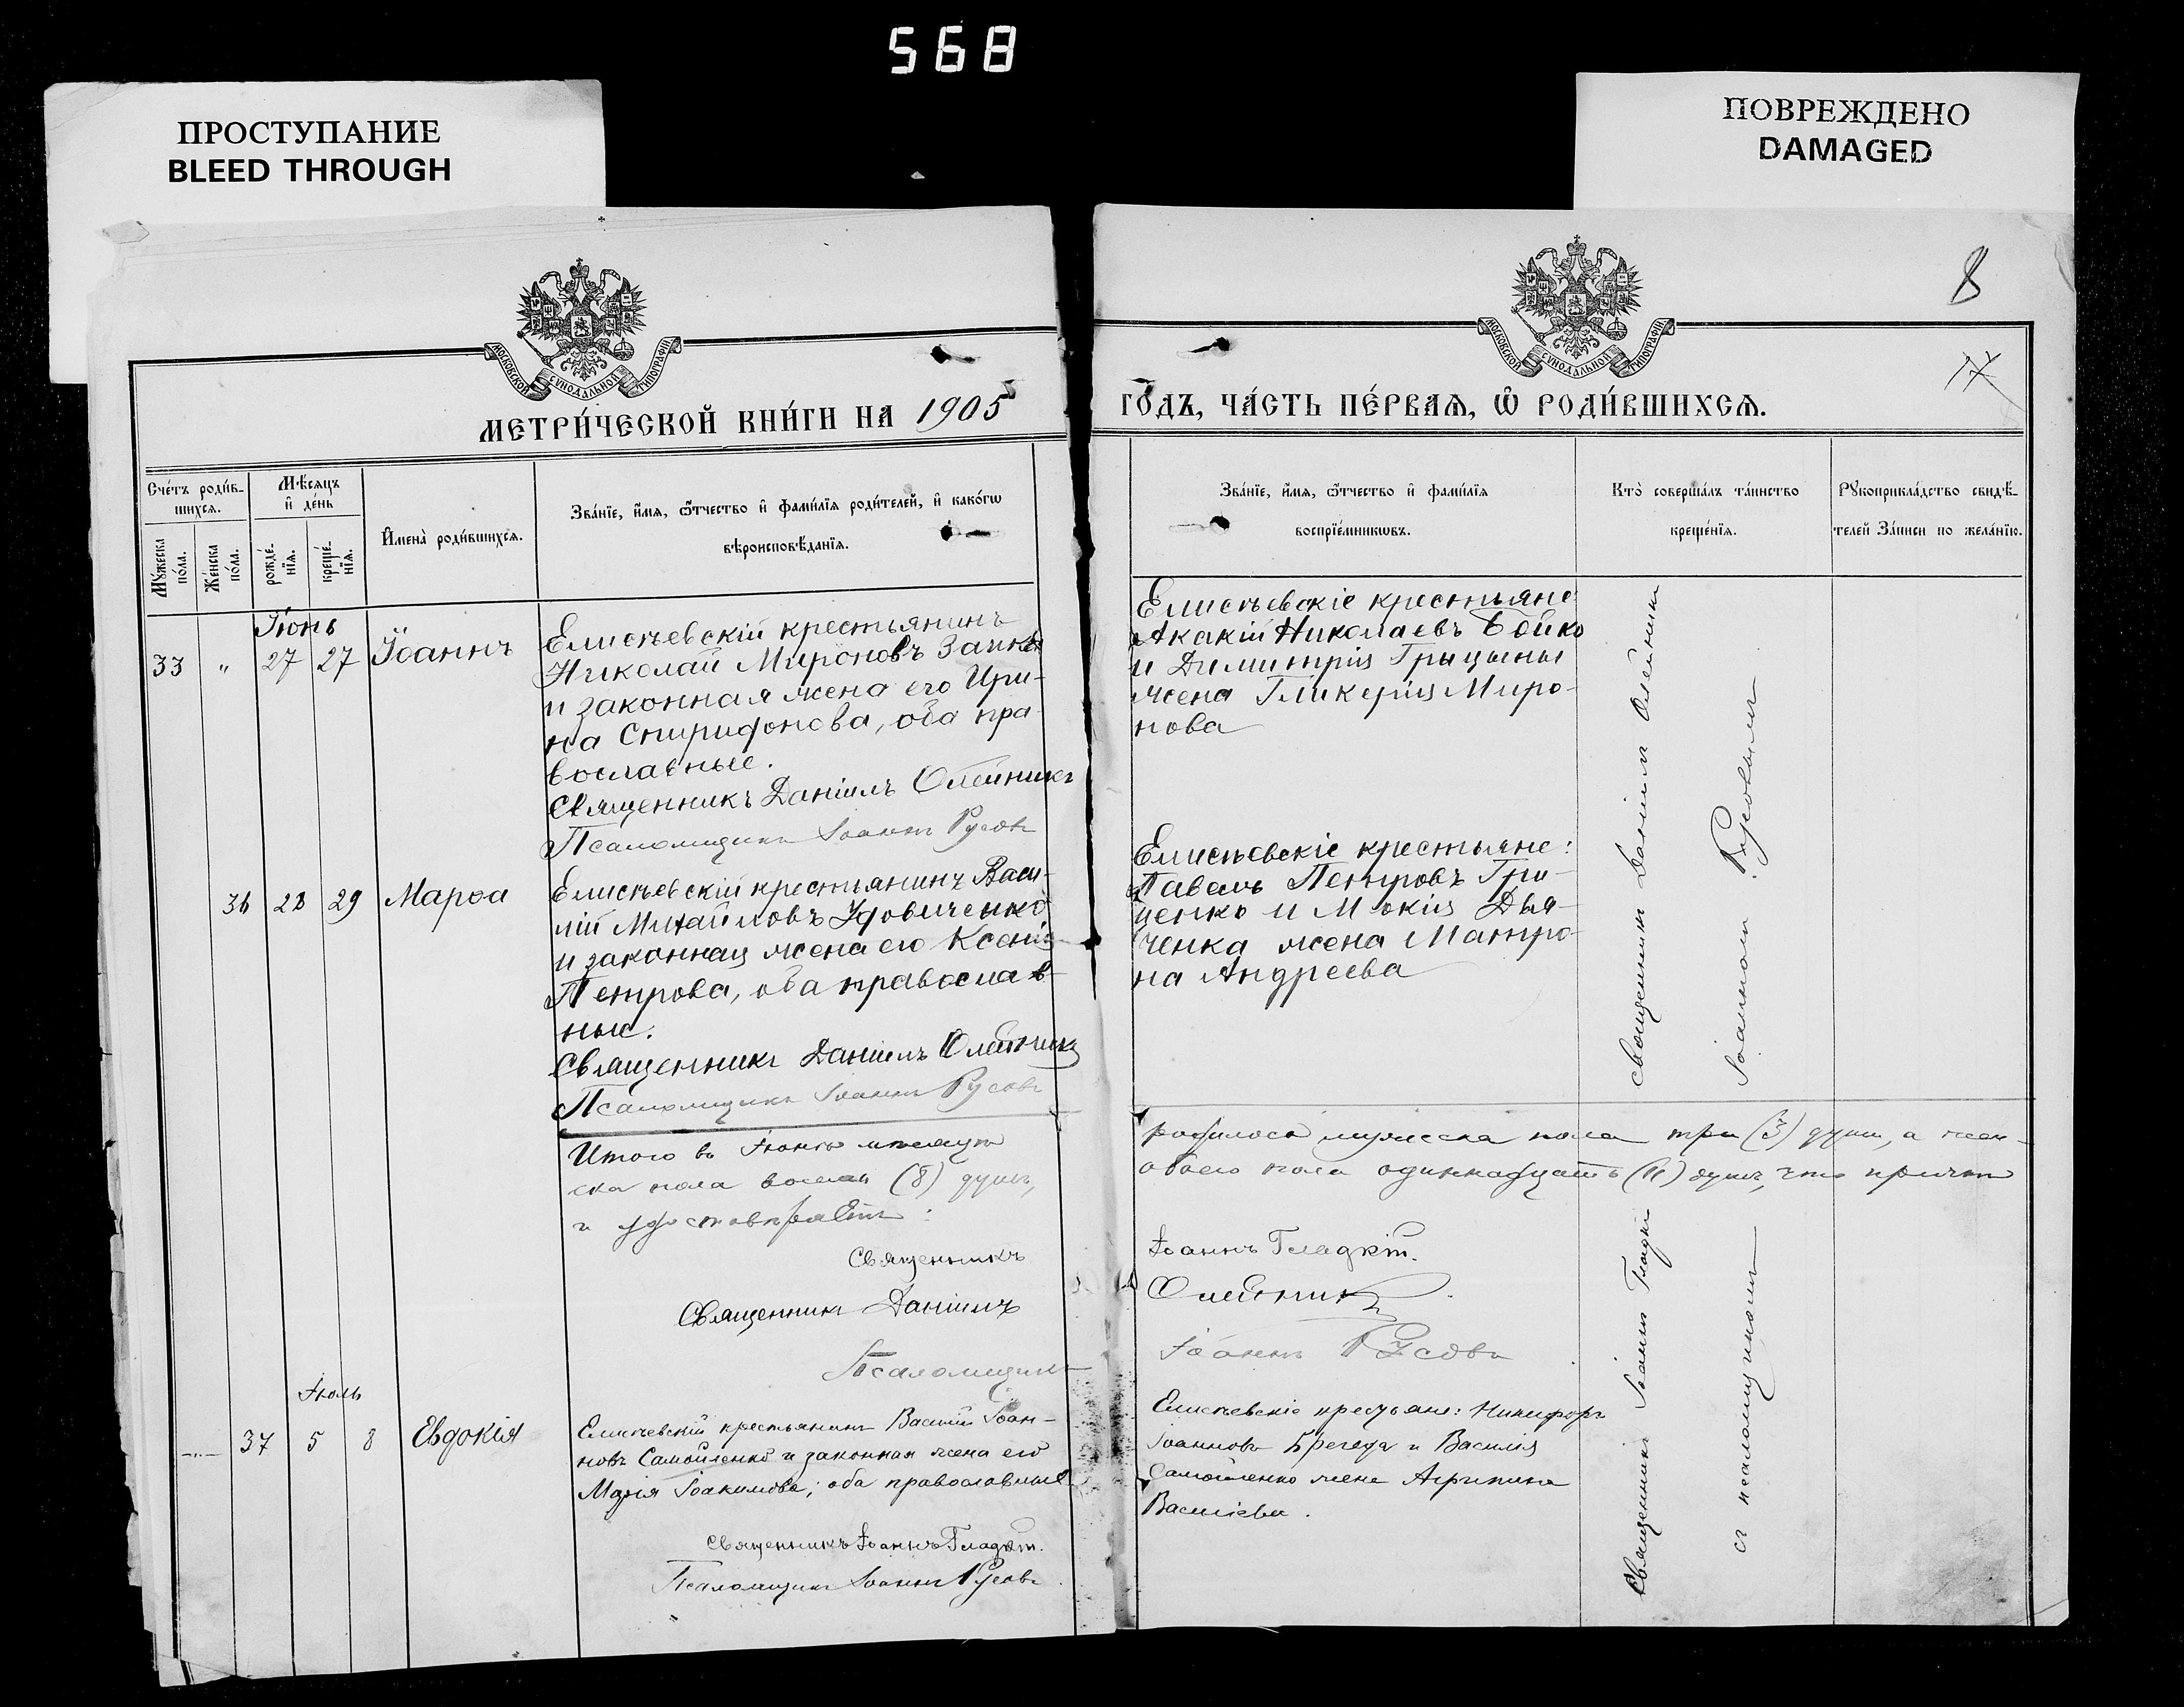 568
ПРОСТУПАНИЕ
BLEED THROUGH
ПОВРЕЖДЕНО
DAMAGED
8
17
МОСКОВСКОЙ СѴНОДАЛЬНОЙ ТИПОГРАФІИ
МОСКОВСКОЙ СѴНОДАЛЬНОЙ ТИПОГРАФІИ
МЕТРИ́ЧЕСКОЙ КНИ́ГИ НА 1905
ГОДЪ, ЧА́СТЬ ПЕ́РВАѦ, Ѡ РОДИ́ВШИХСѦ.
Сче́тъ роди́в-
шихсѧ.
Мѣ́сѧцъ
и҆ де́нь
Мꙋ́жеска
по́ла.
Же́нска
по́ла.
рожде́-
нїѧ.
креще́-
нїѧ.
И҆мена̀ роди́вшихсѧ.
Зва́нїе, и҆́мѧ, ѻ҆́тчество и҆ фами́лїѧ роди́телей, и҆ како́гѡ
вѣроисповѣ́данїѧ.
Зва́нїе, и҆́мѧ, ѻ҆́тчество и҆ фами́лїѧ
воспрїе́мникѡвъ.
Кто̀ соверша́лъ та́инство
креще́нїѧ.
Рꙋкоприкла́дство свидѣ́-
телей За́писи по жела́нїю.
Іюнь
33 " 27 27 Іоаннъ
Елисѣевскій крестьянинъ
Николай Мироновъ
и законная жена его Ири-
на Спиридонова, оба пра-
вославные.
Священникъ Даніилъ Олейникъ
Псаломщикъ Іоаннъ Русовъ
Елисѣевскіе крестьяне
Акакій Николаевъ Бойко
и Димитрія Грицыны
жена Гликерія Миро-
нова
Священникъ Даніилъ Олейникъ
Іоанномъ Русовымъ
36 28 29 Марѳа
Елисѣевскій крестьянинъ Васи-
лій Михайловъ Удовиченко
и законная жена его Ксенія
Петрова, оба православ-
ные.
Священникъ Даніилъ Олейникъ
Псаломщикъ Іоаннъ Русовъ
Елисѣевскіе крестьяне:
Павелъ Петровъ Гри-
ценко и Мокія Дья-
ченка жена Матро-
на Андреева
Итого въ Іюнѣ мѣсяцѣ родилось мужеска пола три (3) души, а жен-
ска пола восемь (8) душъ, обоего пола одиннадцать (11) душъ, что причтъ
и удостовѣряетъ:
Священникъ Іоаннъ Гладкій.
Священникъ Даніилъ Олейникъ
Псаломщикъ Іоаннъ Русовъ
Іюль
—"— 37 5 8 Евдокія
Елисѣевскій крестьянинъ Василій Іоан-
новъ Самойленко и законная жена его
Марія Іоакимова; оба православные
Священникъ Іоаннъ Гладкій.
Псаломщикъ Іоаннъ Русовъ
Елисѣевскіе крестьяне: Никифоръ
Іоанновъ Брегеда и Василія
Самойленко жена Агрипина
Василіева.
Священникъ Іоаннъ Гладкій
съ псаломщикомъ